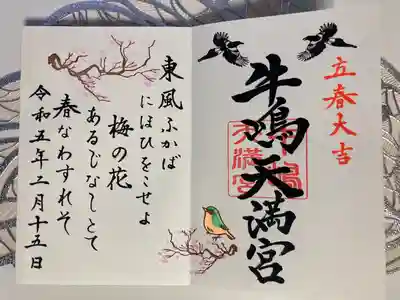 立春大吉
牛嶋天満宮
東風ふかば
にほひをこせよ
梅の花
あるじなしとて
春なわすれそ
令和五年二月十五日